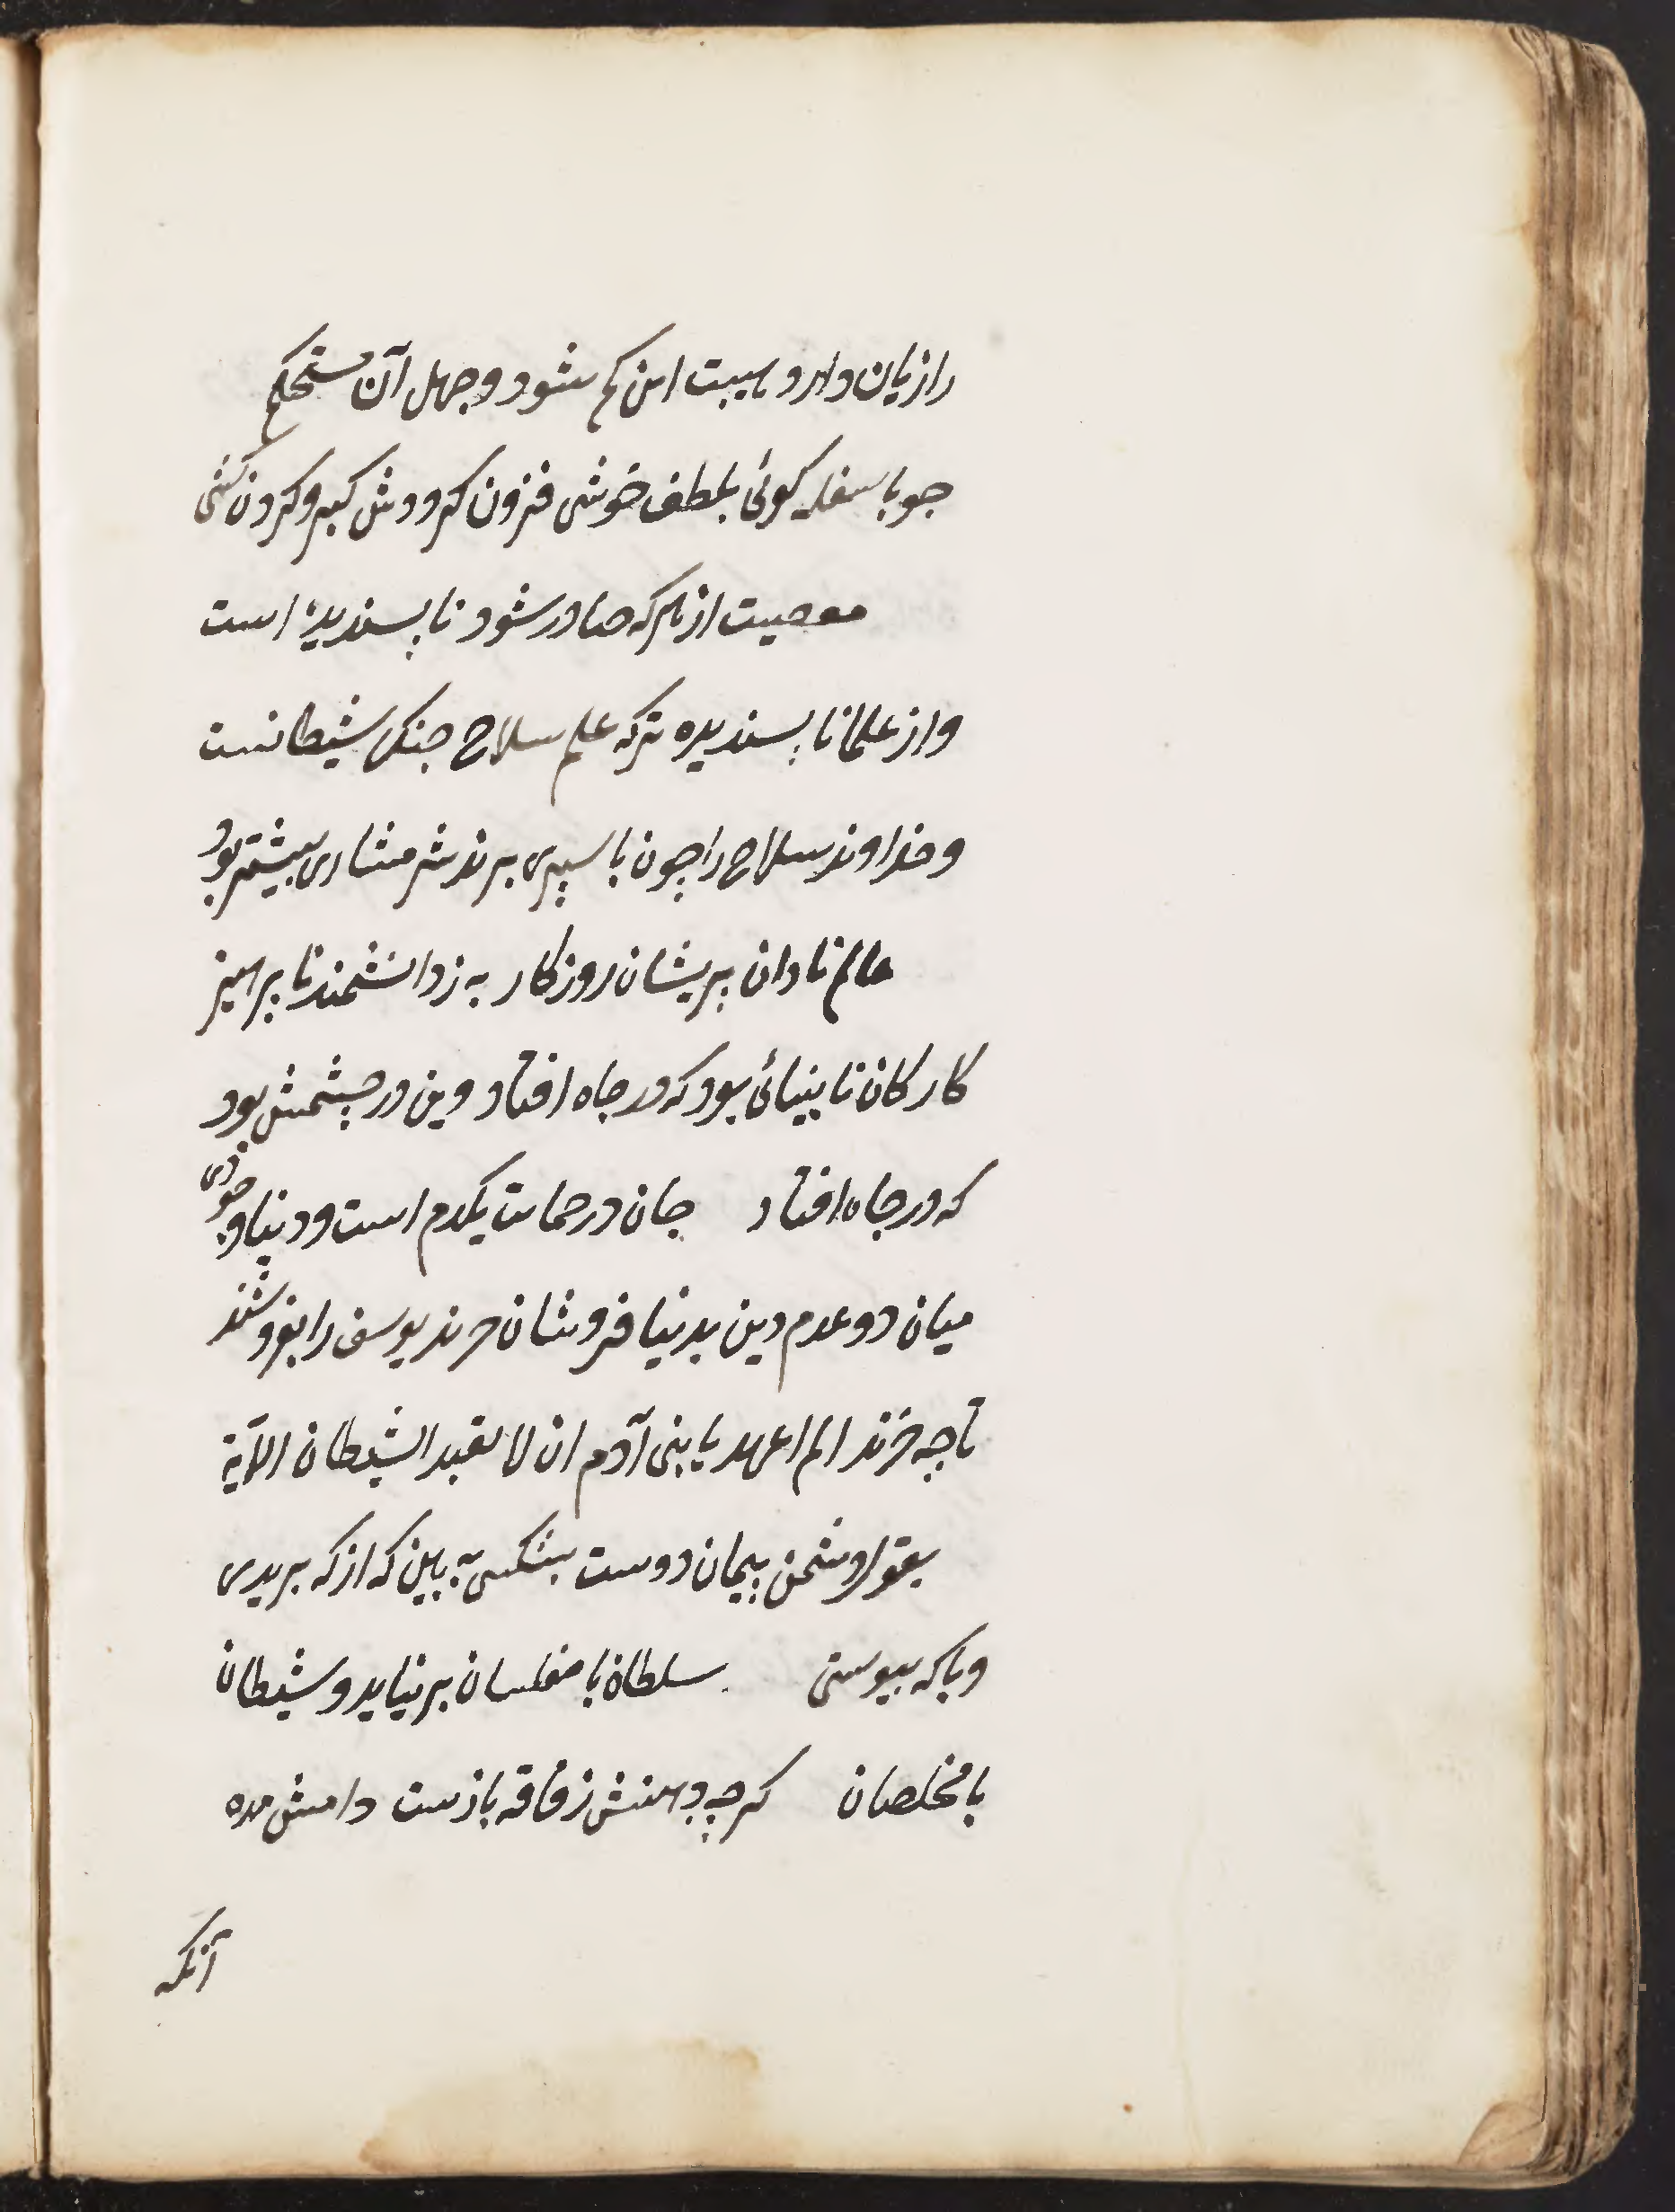 را زیان دارد هیبت این کم شود و جهل آن مستحکم
جو با سفله کوئی بلطف خوشی فزون کرددش کبر و کردن کشی
معصیت از هرکه صادر شود ناپسندیدهٔ است
و از علما ناپسندیده ترکه علم سلاح جنک شیطانست
و خداوند سلاح را چون باسیری برند شرمساری بیشتر بود
عالم نادان پریشان روزکار به ز دانشمند ناپرهیز
کار کان نابینائی بود که در جاه افتاد وین در چشمش بود
که در جاه افتاد جان در حمایت یکدم است و دنیا وجودی
میان دو عدم دین بدنیا فروشان خرند یوسف را بفروشند
تا چه خرند الم اعهد یا بنی آدم ان لا تعبد الشیطان الآیة
بقول دشمن پیمان دوست بشکستی ببین که از که بریدی
و باکه پیوستی سلطان با مفلسان برنیاید و شیطان
با مخلصان کرچه دهنش ز فاقه بازست وامش مده
آنکه